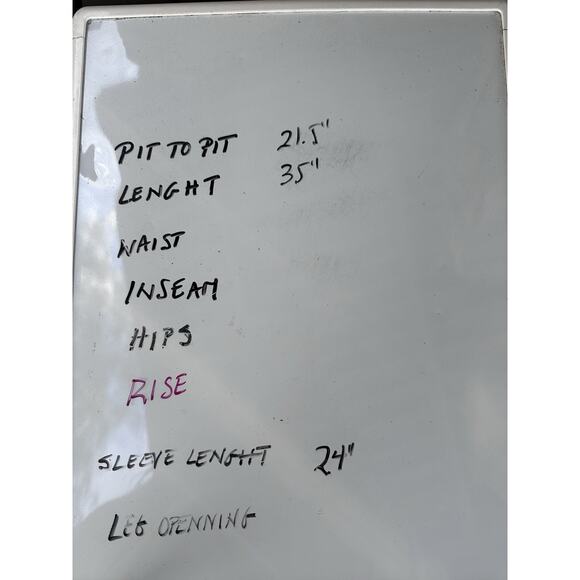 PIT TO PIT 21.5"
LENGHT 35"
WAIST
INSEAM
HIPS
RISE
SLEEVE LENGHT 24"
LEG OPENNING